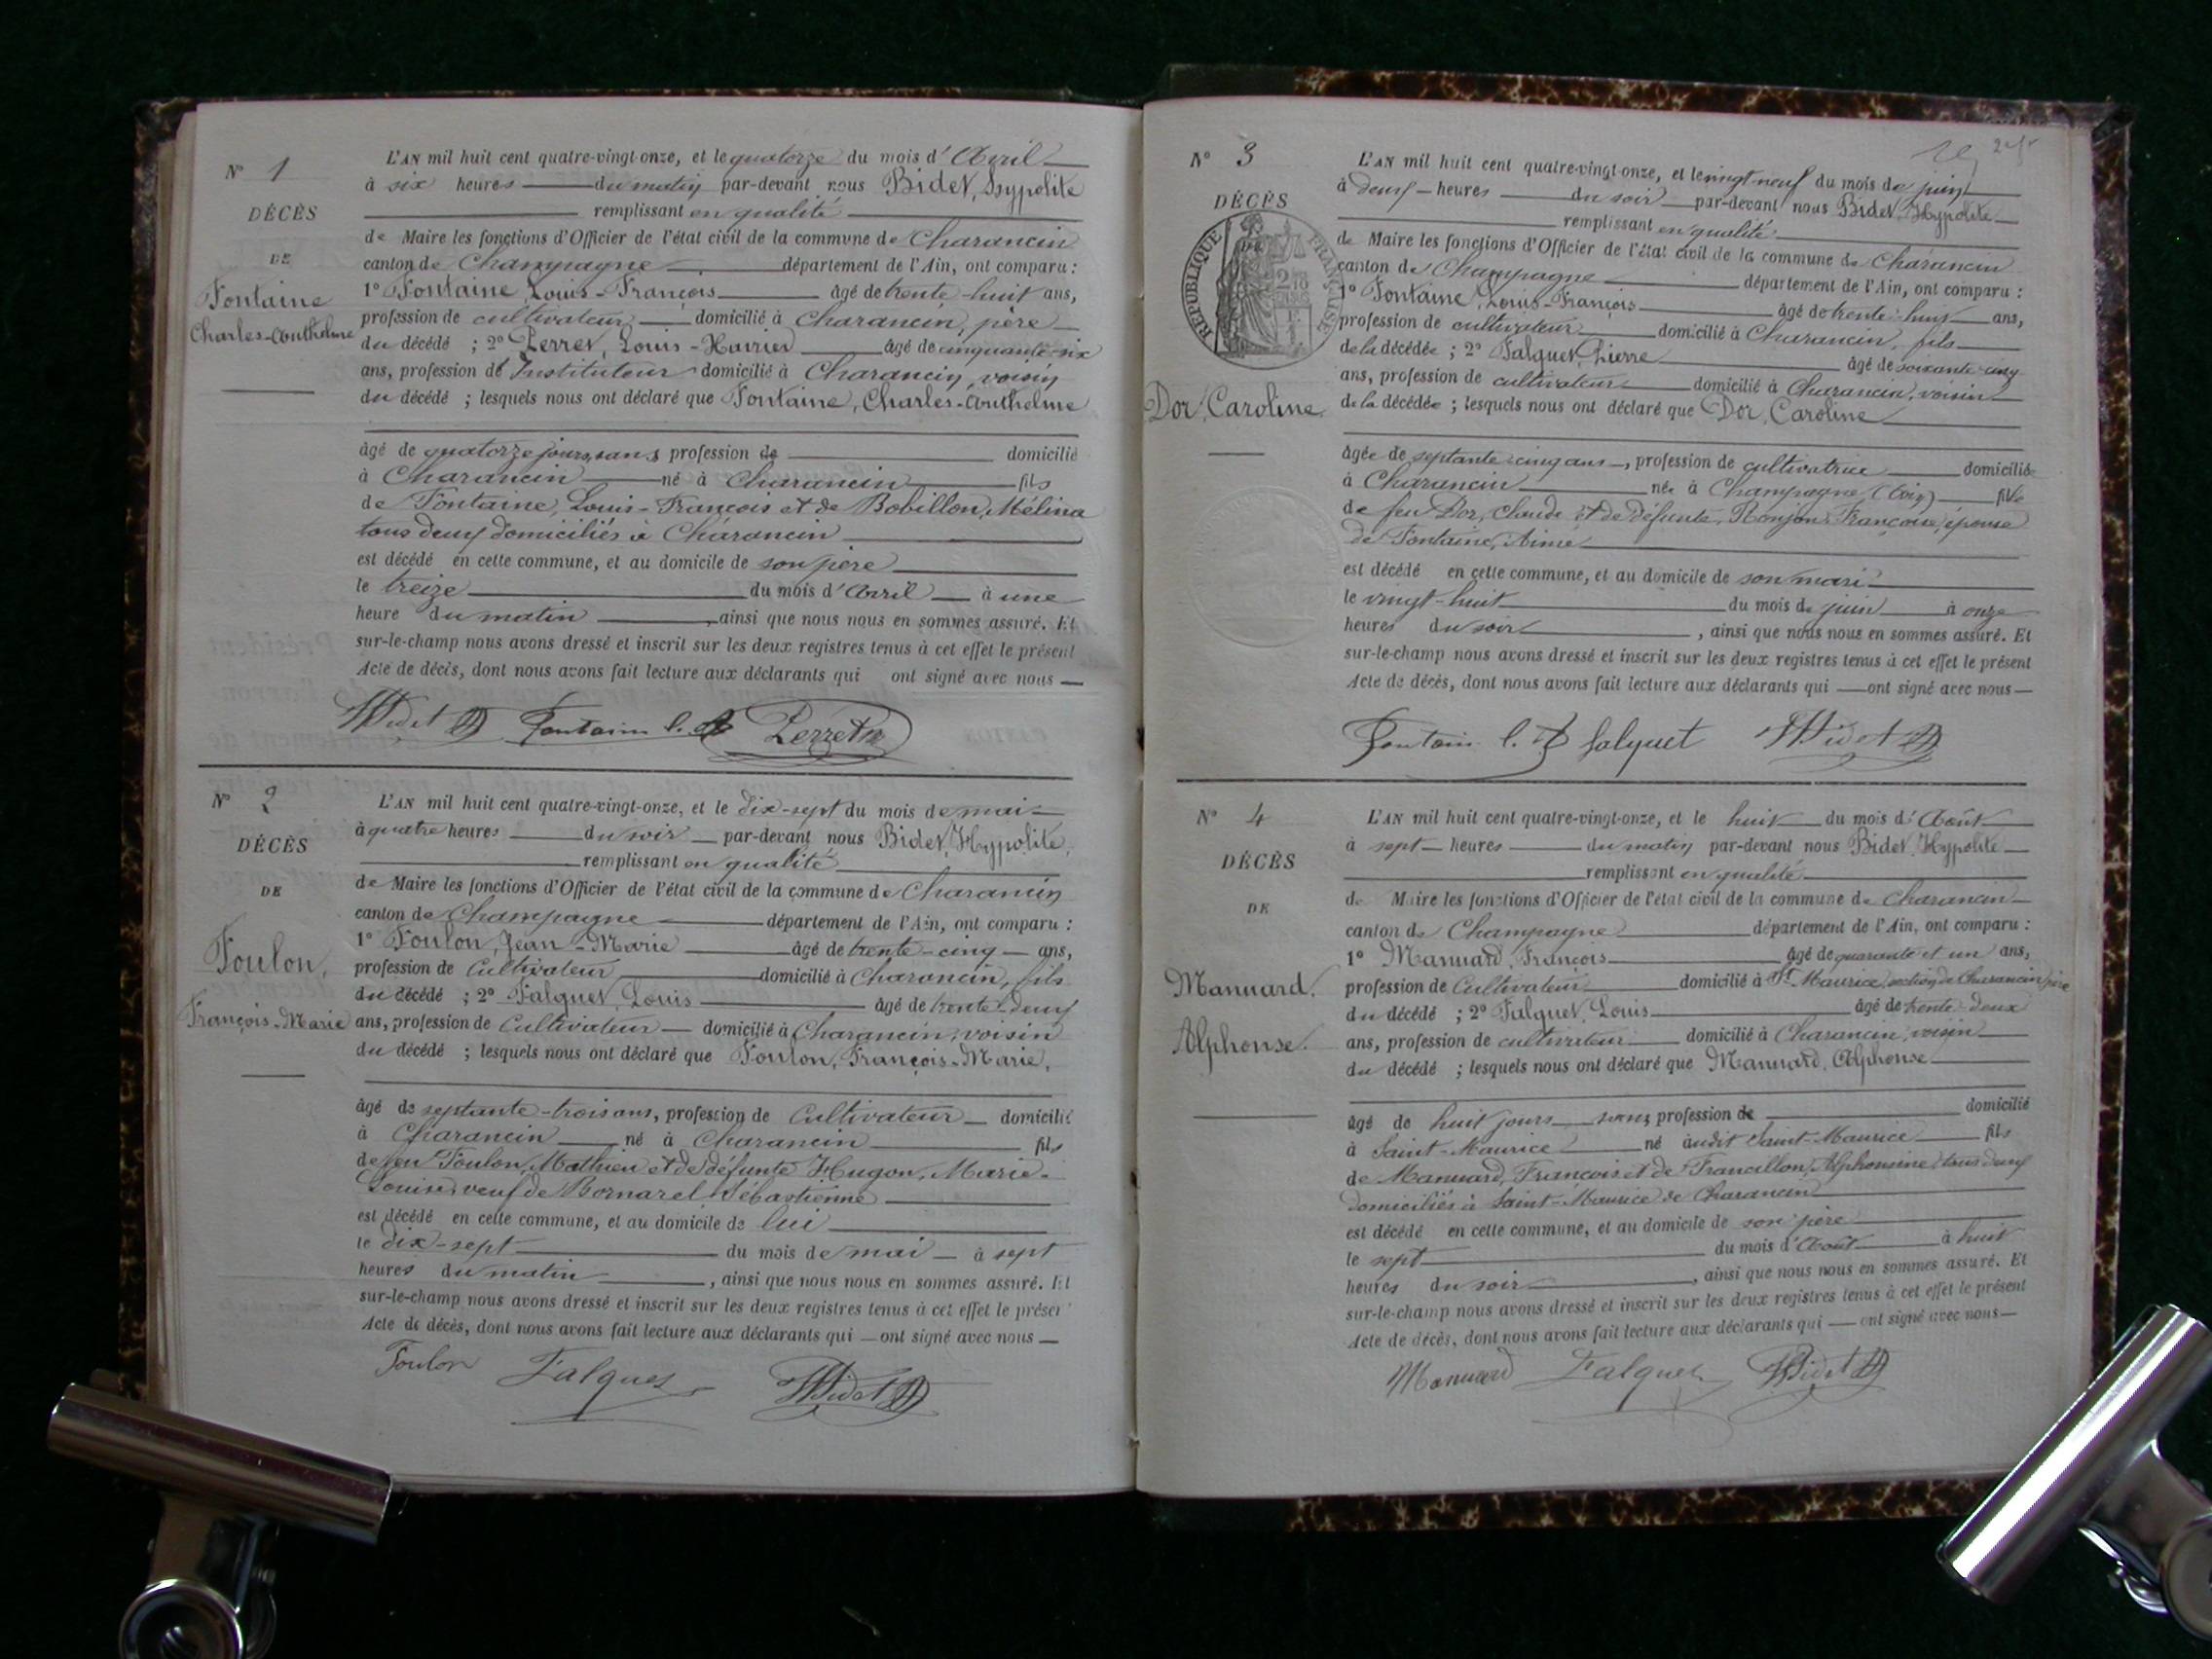 N° 1
DÉCÈS
DE
Fontaine
Charles-Anthelme
L'AN mil huit cent quatre-vingt-onze, et le quatorze du mois d'Avril
à six heures du matin par-devant nous Bidet, Hypolite
remplissant en qualité
de Maire les fonctions d'Officier de l'état civil de la commune de Charancin
canton de Champagne département de l'Ain, ont comparu :
1° Fontaine, Louis-François âgé de trente-huit ans,
profession de cultivateur domicilié à Charancin, père
du décédé ; 2° Perret, Louis-Xavier âgé de cinquante-six
ans, profession d'Instituteur domicilié à Charancin, voisin
du décédé ; lesquels nous ont déclaré que Fontaine, Charles-Anthelme
âgé de quatorze jours, sans profession de domicilié
à Charancin né à Charancin fils
de Fontaine, Louis-François et de Bobillon, Mélina
tous deux domiciliés à Charancin
est décédé en cette commune, et au domicile de son père
le treize du mois d'Avril à une
heure du matin, ainsi que nous nous en sommes assuré. Et
sur-le-champ nous avons dressé et inscrit sur les deux registres tenus à cet effet le présent
Acte de décès, dont nous avons fait lecture aux déclarants qui ont signé avec nous
HBidet Fontaine l. f. Perret
N° 2
DÉCÈS
DE
Foulon,
François-Marie
L'AN mil huit cent quatre-vingt-onze, et le dix-sept du mois de mai
à quatre heures du soir par-devant nous Bidet, Hypolite,
remplissant en qualité
de Maire les fonctions d'Officier de l'état civil de la commune de Charancin
canton de Champagne département de l'Ain, ont comparu :
1° Foulon, Jean-Marie âgé de trente-cinq ans,
profession de Cultivateur domicilié à Charancin, fils
du décédé ; 2° Falquet, Louis âgé de trente-deux
ans, profession de Cultivateur domicilié à Charancin, voisin
du décédé ; lesquels nous ont déclaré que Foulon, François-Marie,
âgé de septante-trois ans, profession de Cultivateur domicilié
à Charancin né à Charancin fils
de feu Foulon, Mathieu et de défunte Hugon, Marie-
Louise, veuf de Bornarel Sébastienne
est décédé en cette commune, et au domicile de lui
le dix-sept du mois de mai à sept
heures du matin, ainsi que nous nous en sommes assuré. Et
sur-le-champ nous avons dressé et inscrit sur les deux registres tenus à cet effet le présent
Acte de décès, dont nous avons fait lecture aux déclarants qui ont signé avec nous
Foulon Falquet HBidet
N° 3
DÉCÈS
RÉPUBLIQUE FRANÇAISE
Dor, Caroline
L'AN mil huit cent quatre-vingt-onze, et le vingt-neuf du mois de juin
à deux heures du soir par-devant nous Bidet, Hypolite
remplissant en qualité
de Maire les fonctions d'Officier de l'état civil de la commune de Charancin
canton de Champagne département de l'Ain, ont comparu :
1° Fontaine, Louis-François âgé de trente-huit ans,
profession de cultivateur domicilié à Charancin, fils
de la décédée ; 2° Falquet, Pierre âgé de soixante-cinq
ans, profession de cultivateur domicilié à Charancin, voisin
de la décédée ; lesquels nous ont déclaré que Dor, Caroline
âgée de septante-cinq ans, profession de cultivatrice domiciliée
à Charancin née à Champagne, (Ain) fille
de feu Dor, Claude et de défunte, Ronjon Françoise, épouse
de Fontaine, Aimé
est décédé en cette commune, et au domicile de son mari
le vingt-huit du mois de juin à onze
heures du soir, ainsi que nous nous en sommes assuré. Et
sur-le-champ nous avons dressé et inscrit sur les deux registres tenus à cet effet le présent
Acte de décès, dont nous avons fait lecture aux déclarants qui ont signé avec nous
Fontaine l. f. falquet HBidet
N° 4
DÉCÈS
DE
Manuard.
Alphonse.
L'AN mil huit cent quatre-vingt-onze, et le huit du mois d'Août
à sept heures du matin par-devant nous Bidet, Hypolite
remplissant en qualité
de Maire les fonctions d'Officier de l'état civil de la commune de Charancin
canton de Champagne département de l'Ain, ont comparu :
1° Manuard, François âgé de quarante et un ans,
profession de Cultivateur domicilié à St Maurice, section de Charancin père
du décédé ; 2° Falquet, Louis âgé de trente-deux
ans, profession de cultivateur domicilié à Charancin, voisin
du décédé ; lesquels nous ont déclaré que Manuard, Alphonse
âgé de huit jours sans profession de domicilié
à Saint-Maurice né audit Saint-Maurice fils
de Manuard, François et de Francillon, Alphonsine tous deux
domiciliés à Saint-Maurice de Charancin
est décédé en cette commune, et au domicile de son père
le sept du mois d'Août à huit
heures du soir, ainsi que nous nous en sommes assuré. Et
sur-le-champ nous avons dressé et inscrit sur les deux registres tenus à cet effet le présent
Acte de décès, dont nous avons fait lecture aux déclarants qui ont signé avec nous
Manuard Falquet HBidet